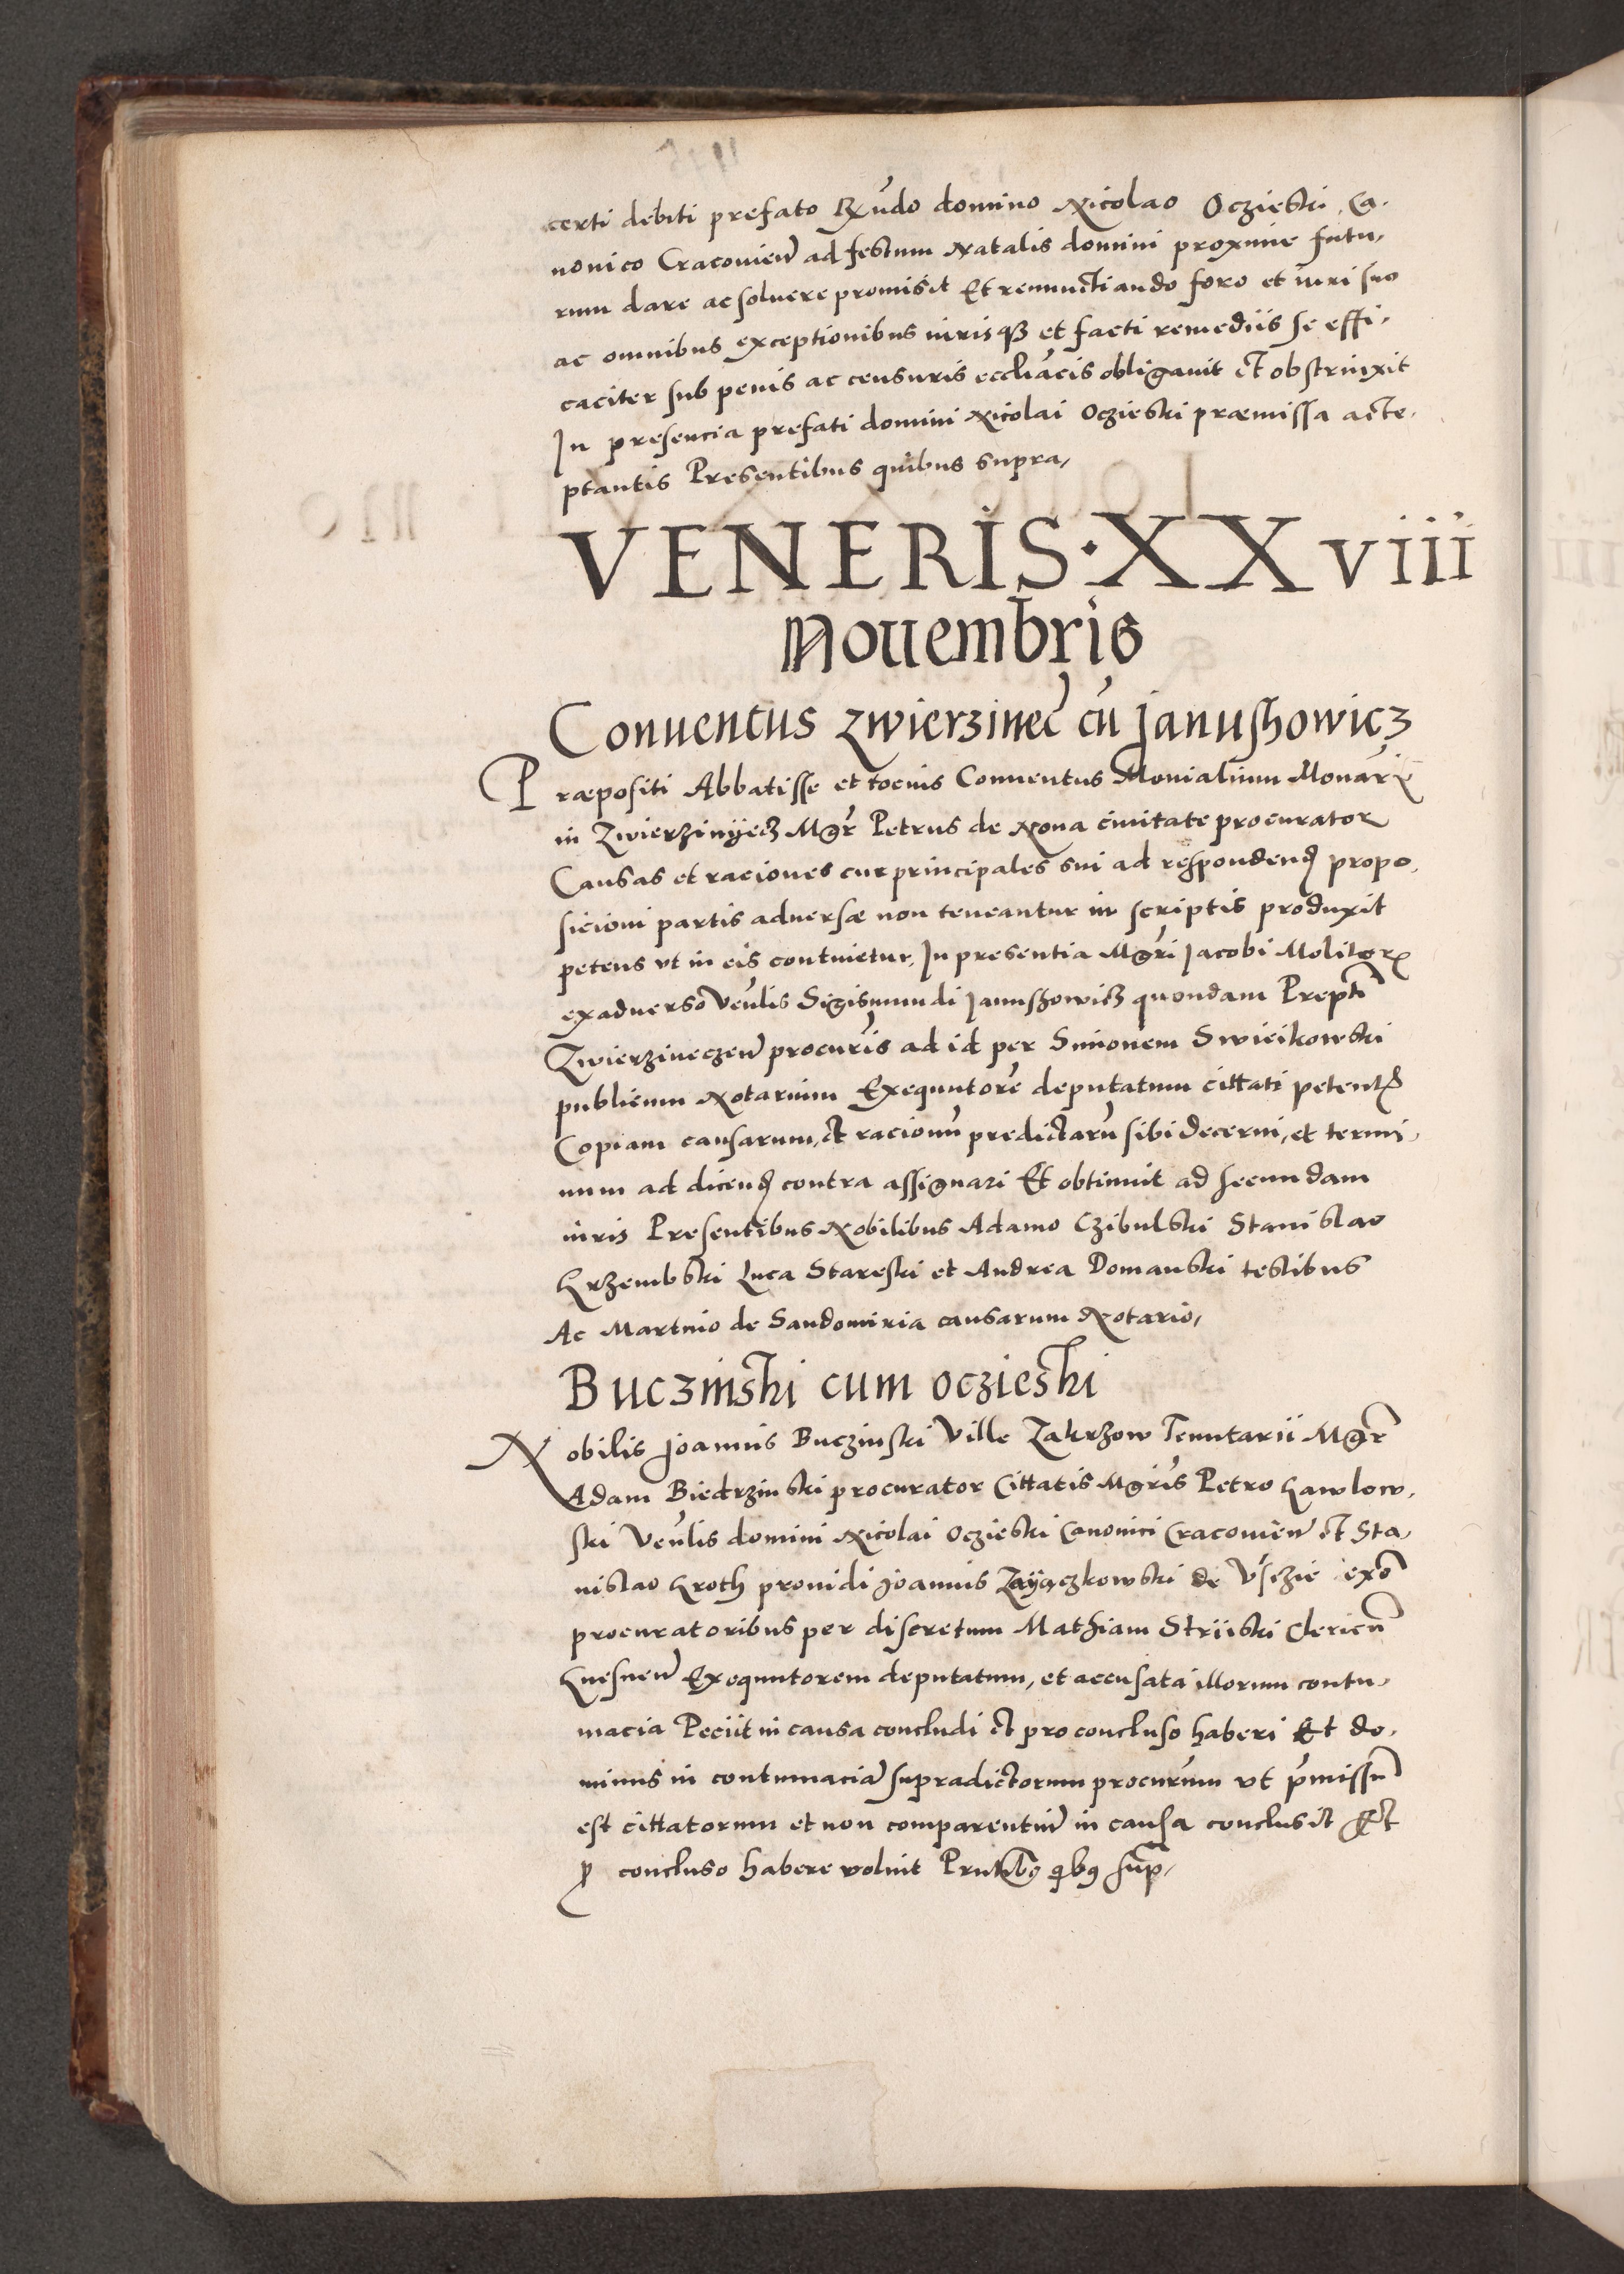 certi debiti prefato Rṽdo domino Nicolao Oczieski, Ca-
nonico Cracovien̄ ad festum Natalis domini proxime futu-
rum dare ac solvere promisit Et renunctiando foro et iuri suo
ac omnibus exceptionibus iurisqꝫ et facti remediis se effi-
caciter sub penis ac censuris eccliácis obligavit et obstrinxit
In presencia prefati domini Nicolai Oczieski præmissa acce-
ptantis Presentibus quibus supra,
VENERIS·XXviii
Nouembris
Conuentus zwierzinec̄ cū janushowicz
Præpositi Abbatisse et tocius Conuentus Monialium Monarÿ
in Zwierzinÿecz Mgr̄ Petrus de Nova civitate procurator
Causas et raciones cur principales sui ad respondend propo-
sicioni partis adversæ non teneantur in scriptis produxit
petens vt in eis continetur, In presentia Mgr̄i Jacobi Molitorꝭ
exadverso Veńlis Sigismundi Janushowicz quondam Prepti
Zwierzineczen̄ procurīs ad id per Simonem Swieikowski
publicum Notarium Exequutorē deputatum cittati petentꝭ
Copiam causarum, et racionū predictarū sibi decerni, et termi-
num ad dicend contra assignari Et obtinuit ad secundam
iuris Presentibus Nobilibus Adamo Czibulski Stanislao
Krzembski Luca Stareski et Andrea Domanski testibus
Ac Martino de Sandomiria causarum Notario,
Buczinski cum oczieski
Nobilis Joannis Buczinski Ville Zakrzow Tenutarii Mgr̄
Adam Biedrzinski procurator Cittatis Mgrīs Petro Kawlow-
ski Veńlis domini Nicolai Oczieski Canonici Cracovien̄ et Sta-
nislao Kroth providi Joannis Zayączkowski de Vsczie exō
procuratoribus per discretum Mathiam Striiski Clericū
Gnesnen̄ Exequutorem deputatum, et accusata illorum contu-
macia Peciit in causa concludi et pro concluso haberi Et do-
minus in contumaciā supradictorum procurūm vt p̄missū
est cittatorum et non comparentiū in causa conclusit Et
ꝓ concluso habere voluit Prntibꝰ qibꝰ sup̄,